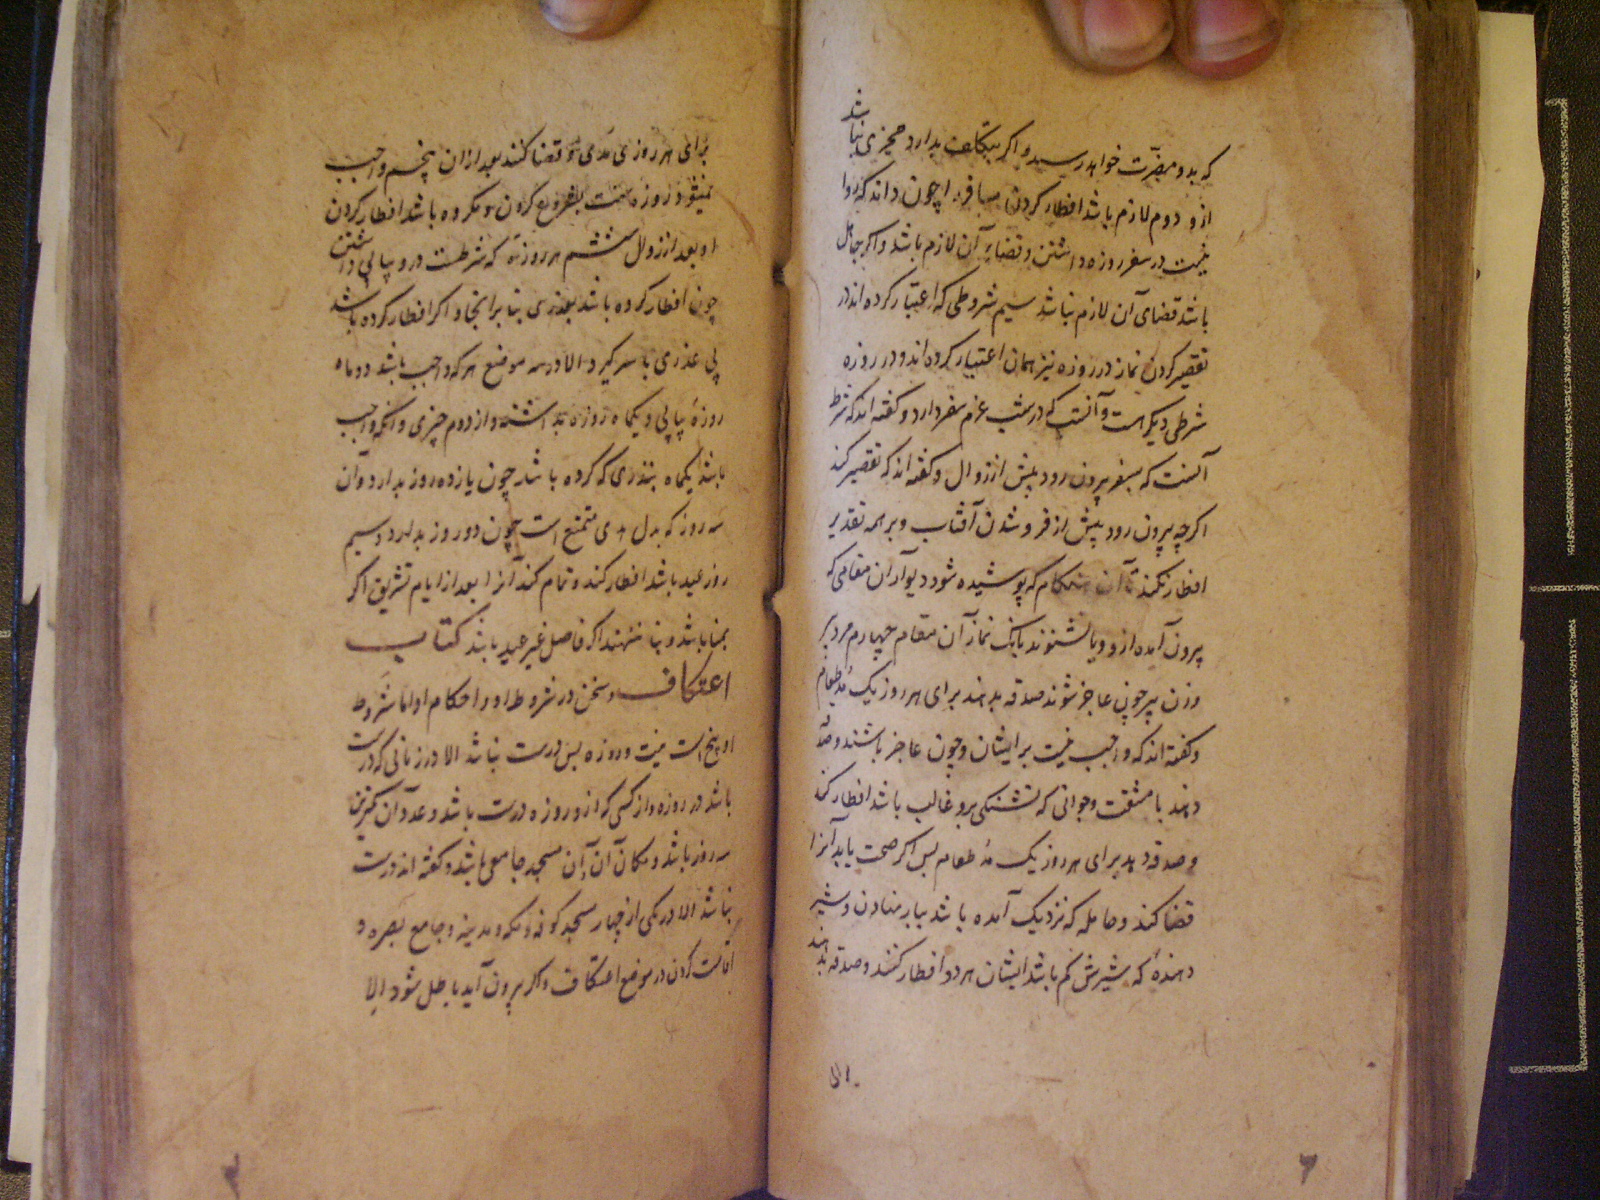 که بدو مضرت خواهد رسید و اگر بتکلف بدارد مجزی نباشد
ازو دوم لازم باشد افطار کردن مسافر را چون داند که روا
نیست در سفر روزه داشتن و قضا بر آن لازم باشد و اگر جاهل
باشد قضای آن لازم نباشد سیم شروطی که اعتبار کرده اند در
تقصیر کردن نماز در روزه نیز همان اعتبار کرده اند و در روزه
شرطی دیگر هست و آنست که در شب عزم سفر دارد و گفته اند که شرط
آنست که بسفر بیرون رود پیش از زوال و گفته اند که تقصیر کند
اگر چه بیرون رود پیش از فرو شدن آفتاب و بر همه تقدیر
افطار نکند تا آن هنگام که پوشیده شود دیوار آن مقامی که
بیرون آمده ازو و یا نشنوند بانگ نماز آن مقام چهارم مرد پیر
و زن پیر چون عاجز شوند صدقه بدهند برای هر روز یک مد طعام
و گفته اند که واجب نیست بر ایشان و چون عاجز باشند و صدقه
دهند با مشقت و جوانی که تشنگی برو غالب باشد افطار کند
و صدقه دهد برای هر روز یک مد طعام پس اگر صحت یابد آنرا
قضا کند و حامله که نزدیک آمده باشد ببار نهادن و شیر
دهنده که شیرش کم باشد ایشان هر دو افطار کنند و صدقه بدهند
برای هر روزی مدی و قضا کنند بعد از آن پنجم واجب
نیشود روزه سنت بشروع کردن و مکروه باشد افطار کردن
او بعد از زوال ششم هر روزه که شرطست درو پیاپی داشتن
چون افطار کرده باشد بعذری بنا بر آنجا و اگر افطار کرده باشد
بی عذری با سر گیرد الا در سه موضع هر که واجب باشد دو ماه
روزه پیاپی و یکماه روزه بداشته و از دوم چیزی و آنکه واجب
باشد یکماه بنذری که کرده باشد چون پانزده روز بدارد و آن
سه روز که بدل هدی تمتع است چون دو روز بدارد و سیم
روز عید باشد افطار کند و تمام کند آنرا بعد از ایام تشریق اگر
بمنا باشد و بنا ننهند اگر فاصل غیر عید باشد کتاب
اعتکاف و سخن در شروط او و احکام او اما شروط
او پنج است نیت و روزه پس درست نباشد الا در زمانی که درست
باشد درو روزه و از کسی که ازو روزه درست باشد و عدد آن کمترین
سه روز باشد و مکان آن آن مسجد جامع باشد و گفته اند درست
نباشد الا در یکی از چهار مسجد کوفه و مکه و مدینه و جامع بصره و
اقامت کردن در موضع اعتکاف و اگر بیرون آید باطل شود الا